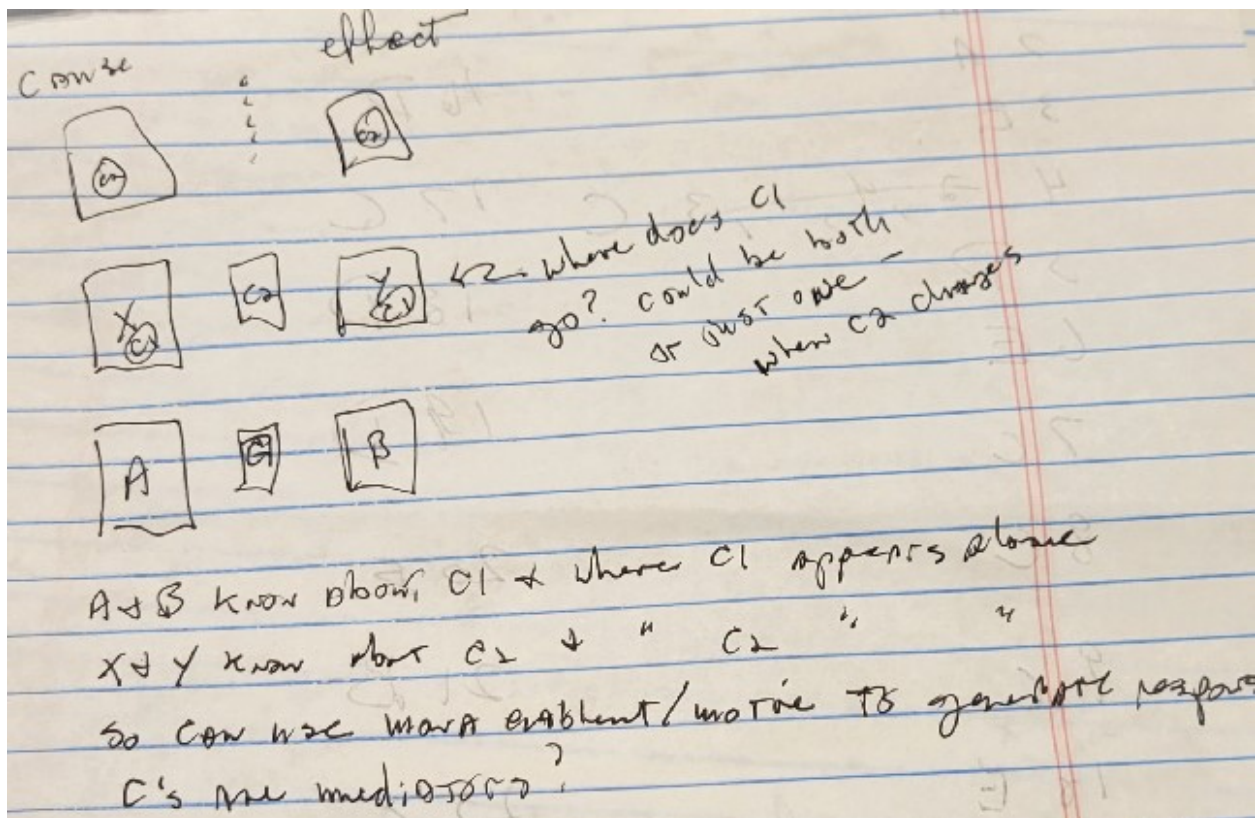 Cause effect
C2 C2
X C1 C2 Y C1 where does C1
go? could be both
or just one -
when C2 changes
A C1 B
A + B know about C1 + where C1 appears alone
X + Y know about C2 + " C2 " "
so can use more /motive to generate
C's are mediators?